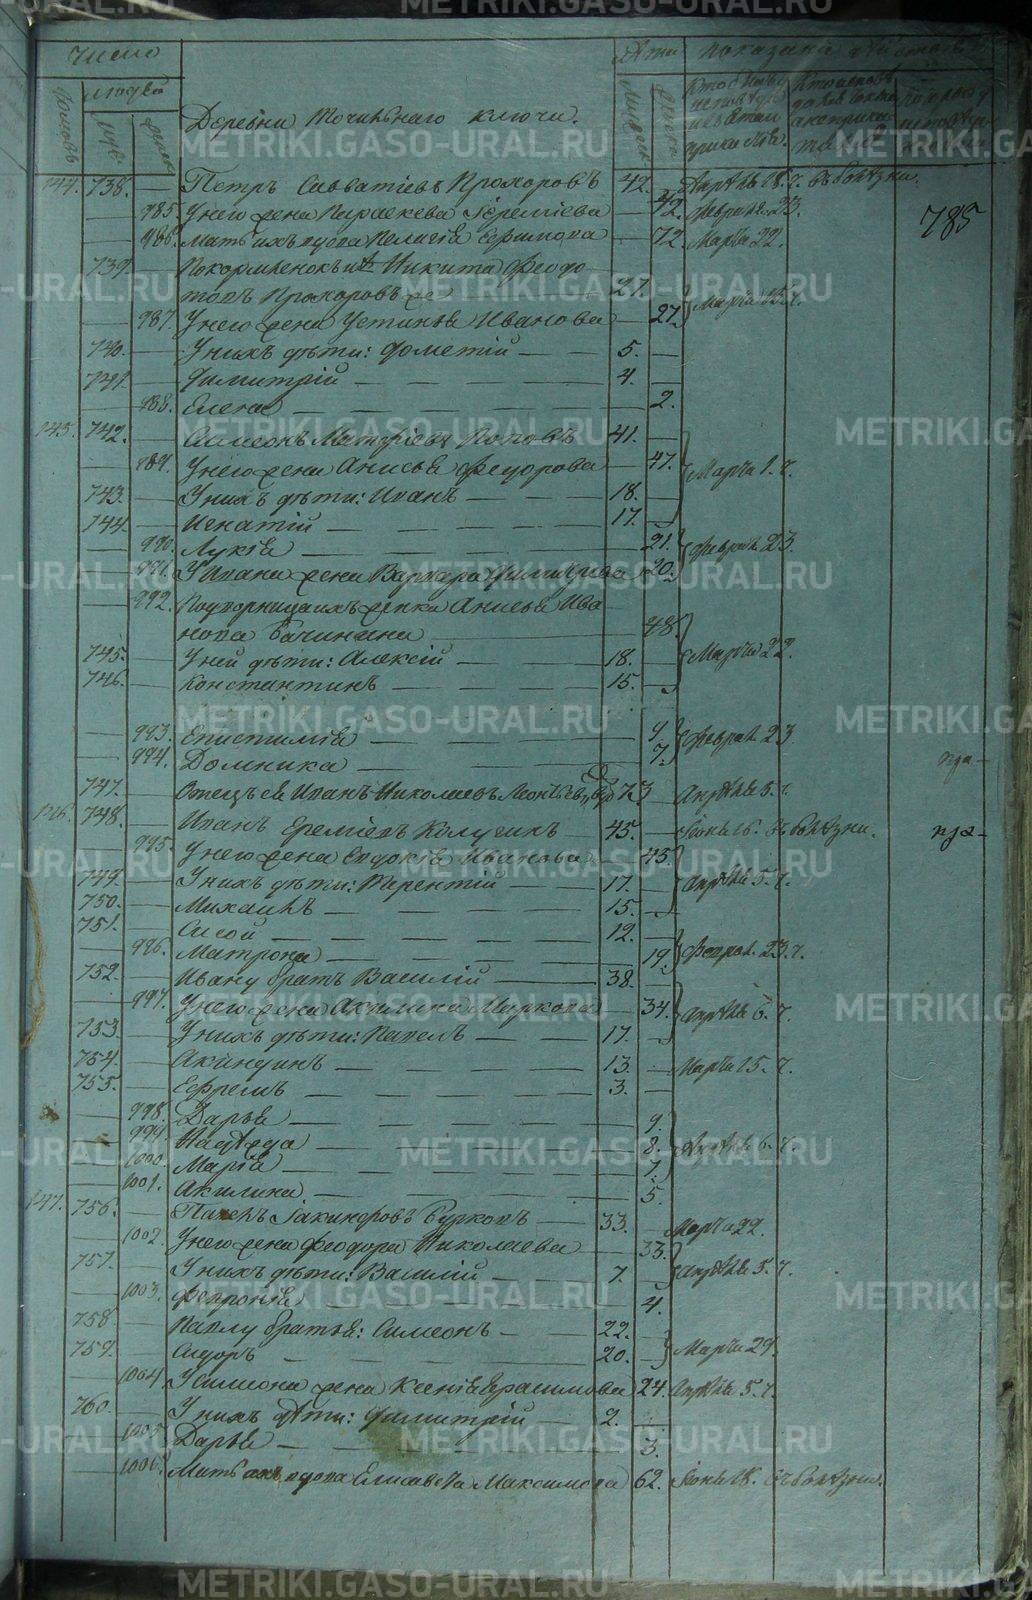 Число
людей
Лета
показание
Домовъ
муж.
женск.
муж.
женск.
Деревни Точильнаго ключа.
785
144. 738. — Петръ Савватіевъ Прохоровъ 42. Апрѣля 18. ч. въ болѣзни.
985. У него жена Параскева Іереміева — 42. Февраля 23.
986. Мать ихъ вдова Пелагія Ефимова — 72. Марта 22.
739. Покормленокъ ихъ Никита Феодо-
товъ Прохоровъ же — 27. Марта 15. ч.
987. У него жена Устинья Иванова — 27.
740. — У нихъ дѣти: Дометій — — 5. —
741. — Димитрій — — — — 4. —
988. Елена — — — — 2.
145. 742. — Симеонъ Матфіевъ Поповъ 41. —
989. У него жена Анисья Федорова — 47. Марта 1. ч.
743. — У нихъ дѣти: Иванъ — — — 18. —
744. — Игнатій — — — — 17. —
990. Лукія — — — — 21. Феврал. 23.
991. У Ивана жена Варвара 20.
992. Подворница ихъ женка Анисья Ива-
нова — 48.
745. — У ней дѣти: Алексій — — 18. — Марта 22.
746. — Константинъ — — — 15. —
993. Епистимія — — — 9 Феврал. 23
994. Домника — — — 7.
747. — Отецъ ея Иванъ Николаевъ 73 Апрѣля 5. ч.
146. 748. — Иванъ Ереміевъ Калугинъ — 45. — Іюнь 16. въ болѣзни.
995. У него жена Евдокія Иванова — 43.
749. — У нихъ дѣти: Терентій — 17. — Апрѣля 5. ч.
750. — Михаилъ — — — 15. —
751. — Сысой — — — — 12. —
996. Матрона — — — 19. Феврал. 23. ч.
752. — Ивану братъ Василій — 38. —
997. У него жена Акилина Маркова — 34. Апрѣля 6. ч.
753. — У нихъ дѣти: Павелъ — 17. —
754. — Акиндинъ — — — 13. — Марта 15. ч.
755. — Ефремъ — — — 3. —
998. Дарья — — — 9.
999. Надежда — — — 8. Апрѣля 6. ч.
1000. Марія — — — 7.
1001. Акилина — — — 5.
147. 756. — Павелъ Іакинфовъ Бурковъ — 33. Марта 22.
1002. У него жена Феодора Николаева — 33.
757. — У нихъ дѣти: Василій — 7. — Апрѣля 5. ч.
1003. Февронія — — — 4.
758. — Павлу братья: Симеонъ — 22. —
759. — Сидоръ — — — 20. — Марта 29.
1004. У Симеона жена Ксенія Герасимова 24. Апрѣля 5. ч.
760. — У нихъ дѣти: Димитрій — 2. —
1005. Дарья — — — 3.
1006. Мать ихъ вдова Елисавета Максимова 62. Іюнь 18. въ болѣзни.